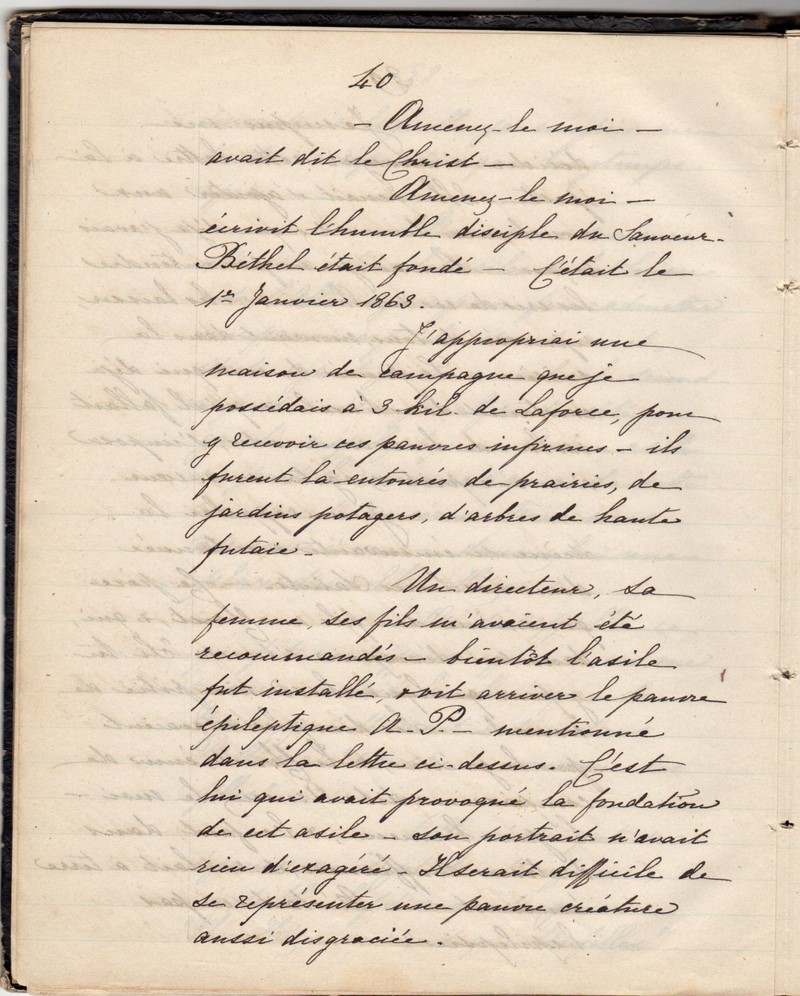 40
— Amenez-le moi —
avait dit le Christ —
Amenez-le moi —
écrivit l'humble disciple du Sauveur-
Béthel était fondé — C'était le
1er Janvier 1863.
J'appropriai une
maison de campagne que je
possédais à 3 kil. de Laforce, pour
y recevoir ces pauvres infirmes — ils
furent là entourés de prairies, de
jardins potagers, d'arbres de haute
futaie —
Un directeur, sa
femme, ses fils m'avaient été
recommandés — bientôt l'asile
fut installé, & vit arriver le pauvre
épileptique A. P. — mentionné
dans la lettre ci-dessus. C'est
lui qui avait provoqué la fondation
de cet asile — son portrait n'avait
rien d'exagéré — Il serait difficile de
se représenter une pauvre créature
aussi disgraciée.